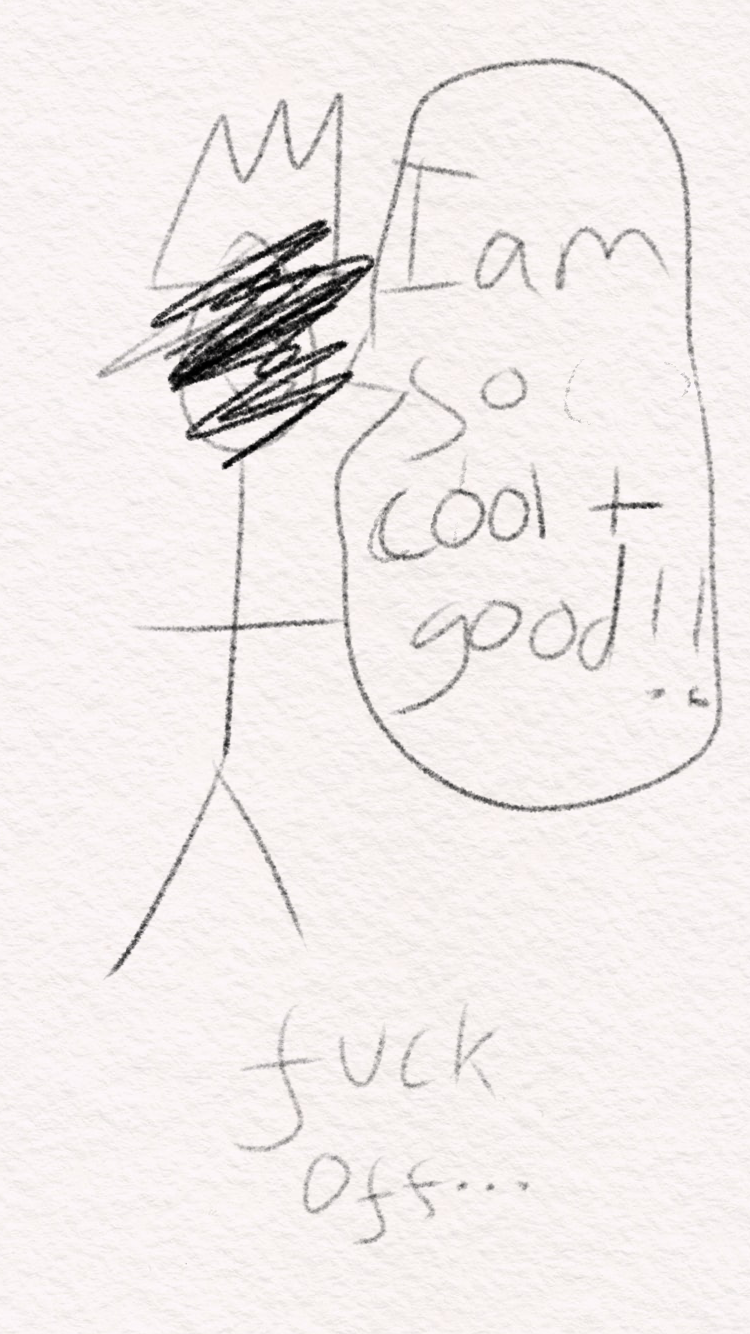 I am
so
cool +
good!!
fuck
off...